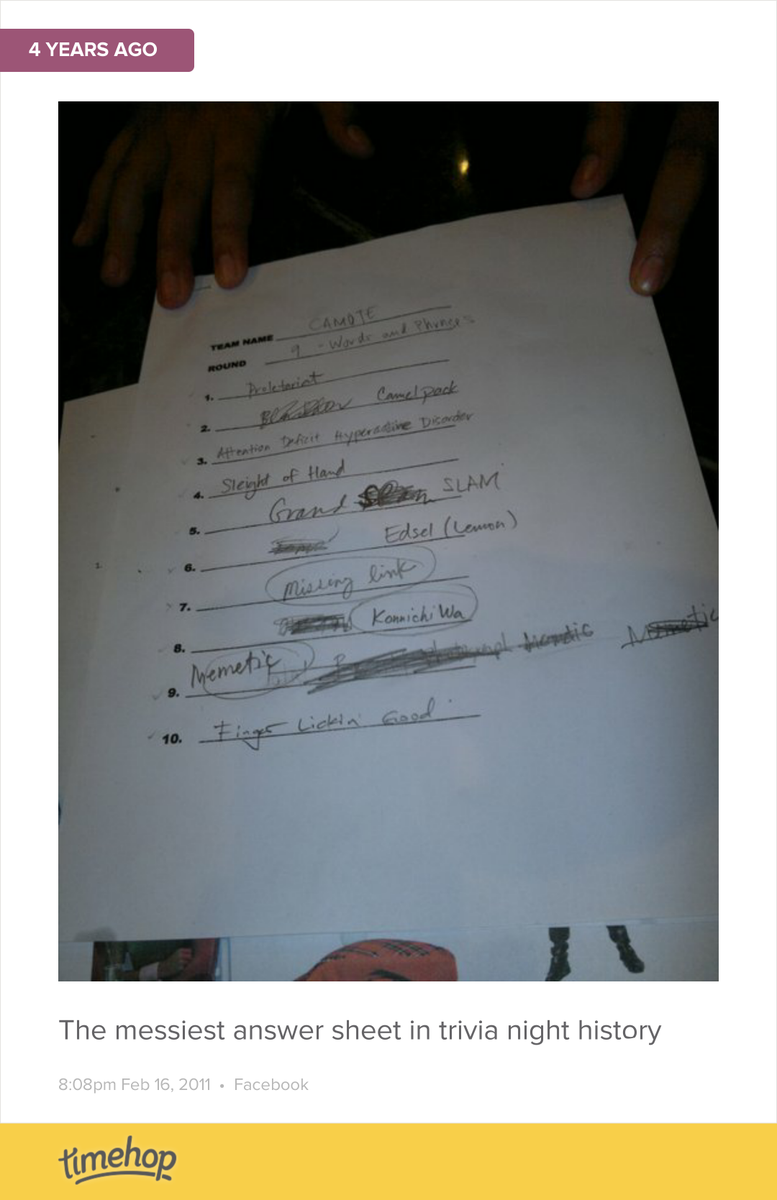 4 YEARS AGO
TEAM NAME CAMOTE
ROUND 9 - Words and Phrases
1. Proletariat
2. Camelpack
3. Attention Deficit Hyperactive Disorder
4. Sleight of Hand
5. Grand SLAM
6. Edsel (Lemon)
7. Missing link
8. Konnichi Wa
9. Memetic
10. Finger Lickin' Good
The messiest answer sheet in trivia night history
8:08pm Feb 16, 2011 • Facebook
timehop